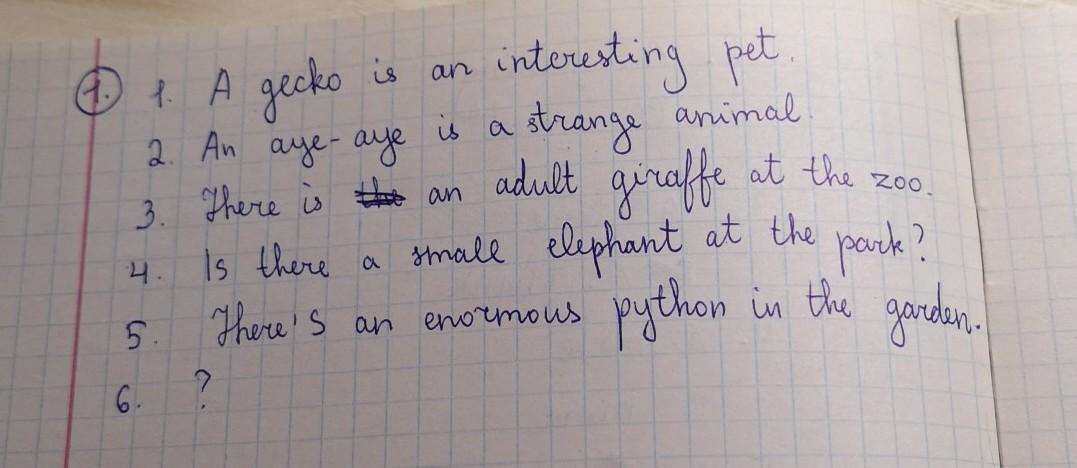 1. 1. A gecko is an interesting pet.
2. An aye-aye is a strange animal.
3. There is the an adult giraffe at the zoo.
4. Is there a small elephant at the park?
5. There's an enormous python in the garden.
6. ?